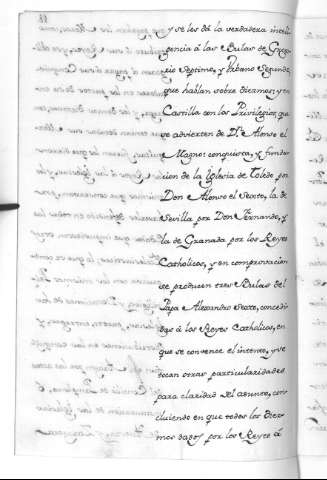 y se les dá la verdadera inteli
gencia á las Bulas de Grego
rio Septimo, y Urbano Segundo,
que hablan sobre diezmos; y en
Castilla con los Privilegios, que
se advierten de Dn. Alonso el
Magno: conquista, y funda-
cion de la Yglesia de Toledo por
Don Alonso el Sexto, la de
Sevilla por Don Fernando, y
la de Granada por los Reyes
Catholicos, y en comprovacion
se producen tres Bulas del
Papa Alexandro Sexto, concedi
das á los Reyes Catholicos, en
que se convence el intento, y se
tocan otras particularidades
para claridad del asunto, con
cluiendo en que todos los Diez
mos dados por los Reyes á